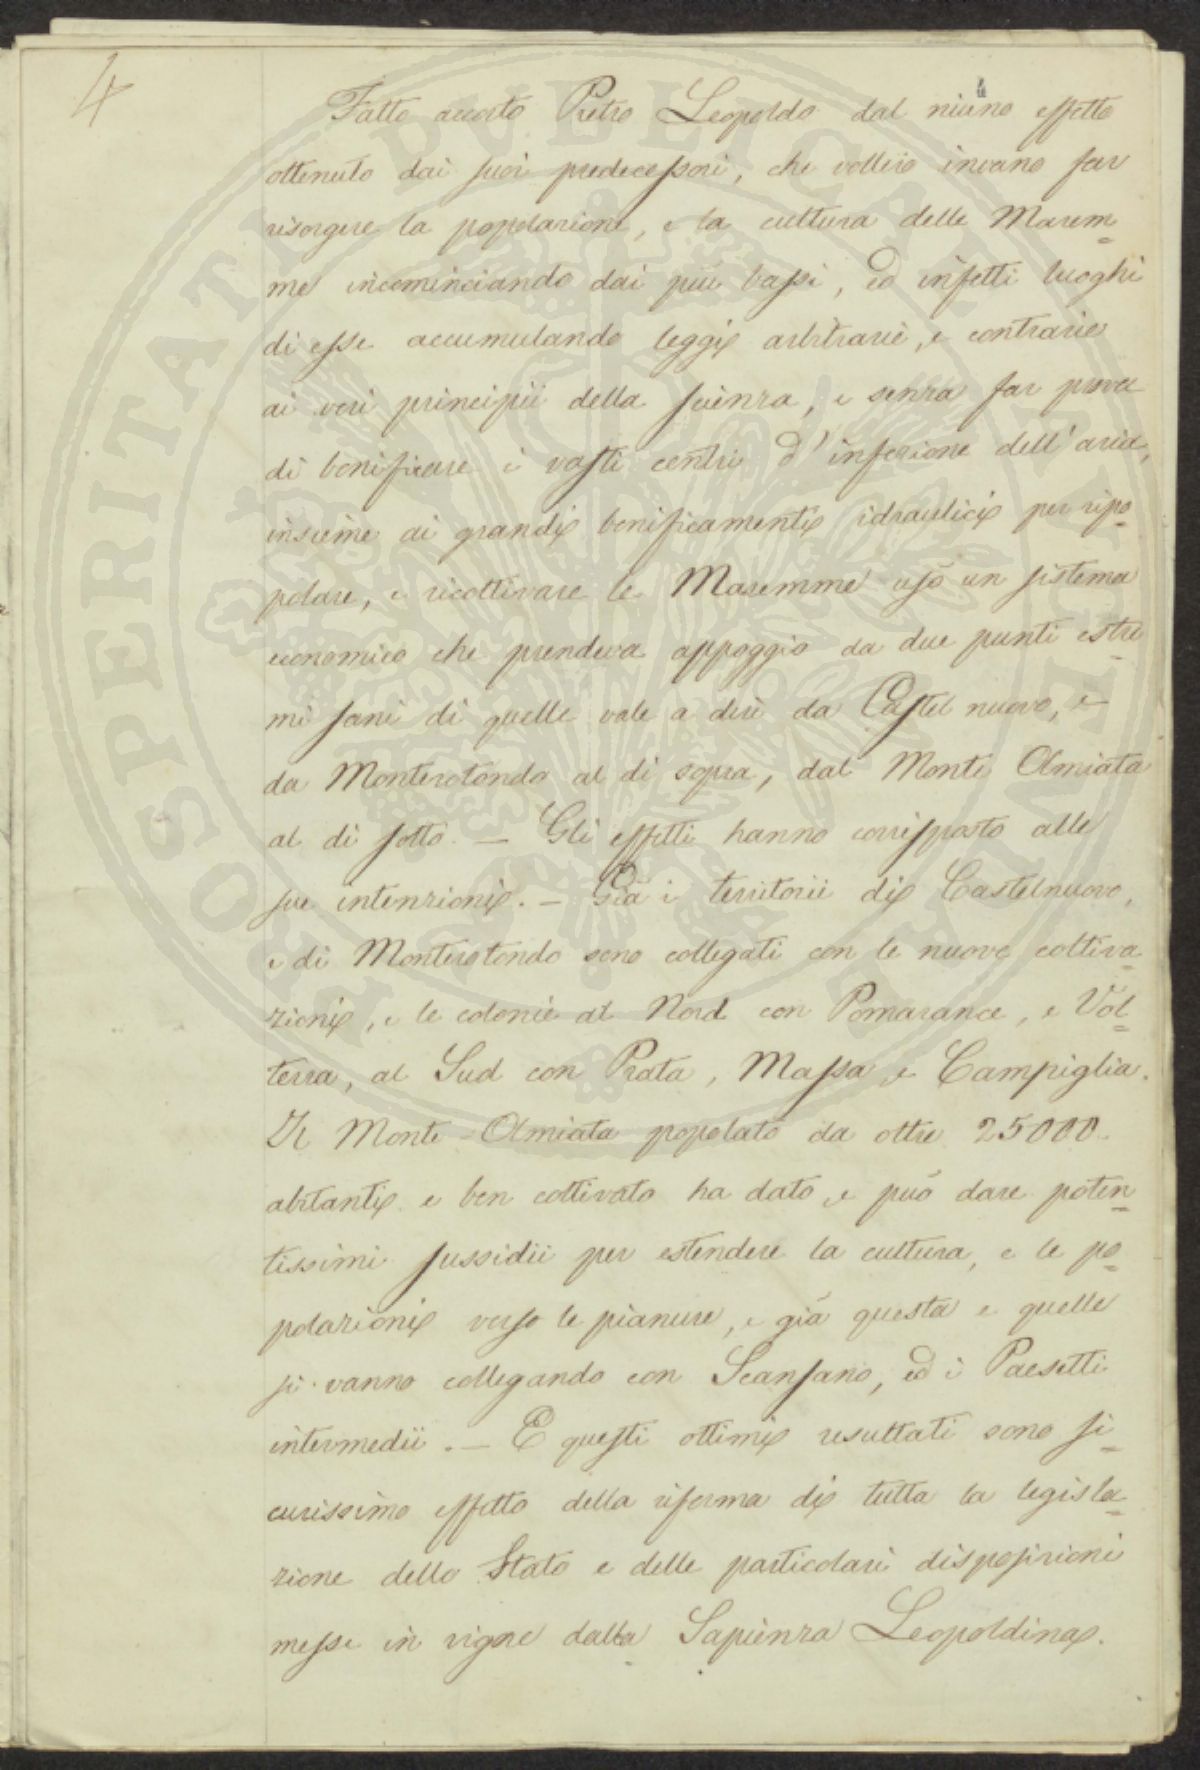 4
Fatto accorto Pietro Leopoldo dal niuno effetto
ottenuto dai suoi predecessori, che vollero invano far
risorgere la popolazione, e la cultura delle Marem=
me incominciando dai più bassi, ed infetti luoghi
di esse accumulando leggi arbitrarie, e contrarie
ai veri principii della scienza, e senza far prova
di bonificare i vasti centri d'infezione dell'aria,
insieme ai grandi bonificamenti idraulici per ripo=
polare, e ricoltivare le Maremme usò un sistema
economico che prendeva appoggio da due punti estre=
mi sani di quelle vale a dire da Castel nuovo, e
da Monterotondo al di sopra, dal Monte Amiata
al di sotto. — Gli effetti hanno corrisposto alle
sue intenzioni. — Già i territorii di Castelnuovo,
e di Monterotondo sono collegati con le nuove coltiva=
zioni, e le colonie al Nord con Pomarance, e Vol=
terra, al Sud con Prata, Massa, e Campiglia.
Il Monte Amiata popolato da oltre 25000
abitanti e ben coltivato ha dato, e può dare poten=
tissimi sussidii per estendere la cultura, e le po=
polazioni verso le pianure, e già questa e quelle
si vanno collegando con Scansano, ed i Paesetti
intermedii. — E questi ottimi resultati sono si=
curissimo effetto della riforma di tutta la legisla=
zione dello Stato e delle particolari disposizioni
messe in vigore dalla Sapienza Leopoldina.
PROSPERITATI PVBLICAE